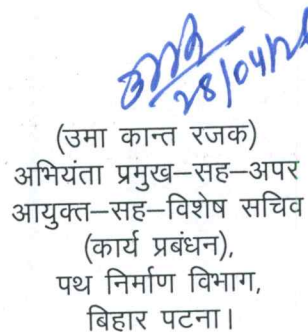 28/04/2
(उमा कान्त रजक)
अभियंता प्रमुख–सह–अपर
आयुक्त–सह–विशेष सचिव
(कार्य प्रबंधन),
पथ निर्माण विभाग,
बिहार पटना।